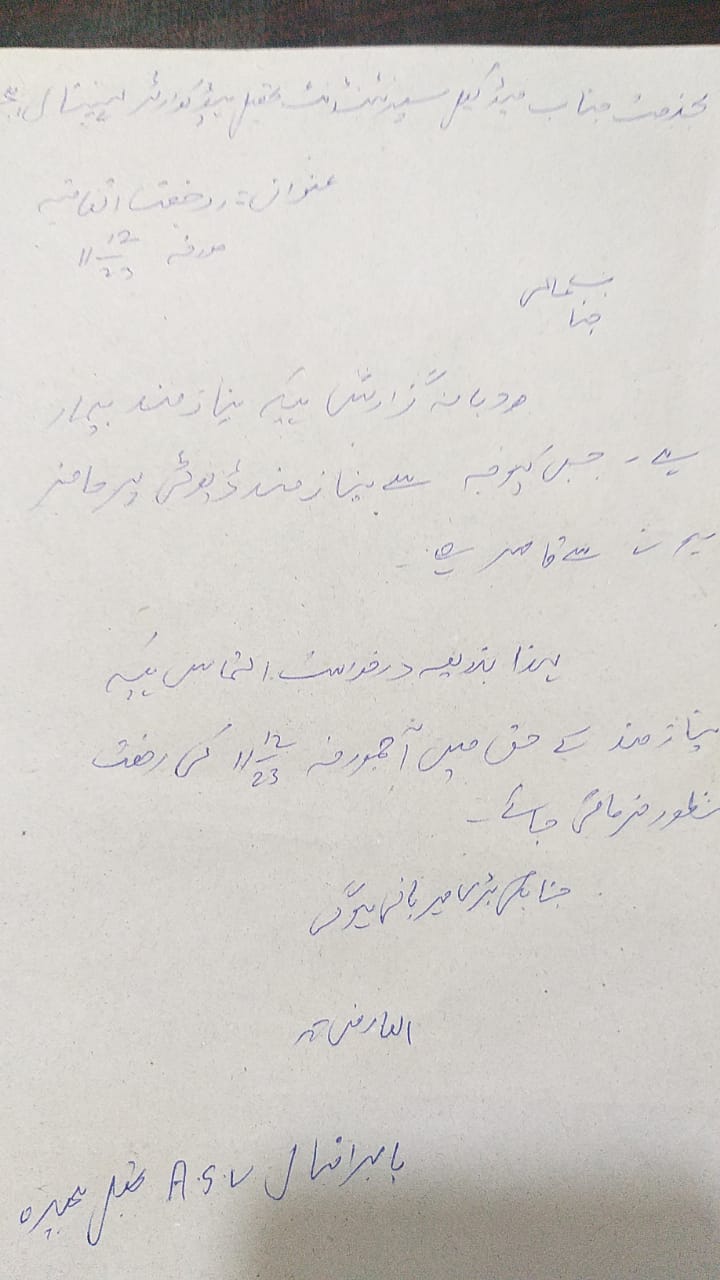 بخدمت جناب میڈیکل سپرنٹنڈنٹ تحصیل ہیڈ کوارٹر ہسپتال
عنوان:۔ رخصت اتفاقیہ
مورخہ 11 12/23
جناب عالی
مودبانہ گزارش ہیکہ نیازمند بیمار
ہے۔ جس کیوجہ سے نیازمند ڈیوٹی پر حاضر
ہونے سے قاصر ہے۔
لہذا بذریعہ درخواست التماس ہیکہ
نیازمند کے حق میں آج مورخہ 11 12/23 کی رخصت
منظور فرمائی جائے۔
جناب کی بڑی مہربانی ہوگی
العارض:۔
بابر اقبال A.S.V تحصیل ہجیرہ